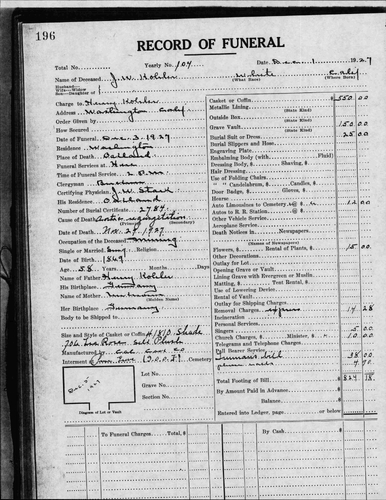 196
RECORD OF FUNERAL
Total No. Yearly No. 104 Date Dec 1 1927
Name of Deceased J. W. Kohler White Calif
(What Race) (Where Born)
Husband—Wife—Widow
Son—Daughter of
Charge to Henry Kohler
Address Washington Calif
Order Given by
How Secured
Date of Funeral Dec. 3, 1927
Residence Washington
Place of Death Oakland
Funeral Services at Here
Time of Services 2 P.M.
Clergyman
Certifying Physician
His Residence Oakland
Number of Burial Certificate 2784
Cause of Death Aortic regurgitation
(Primary) (Secondary)
Date of Death Nov. 29, 1927
Occupation of the Deceased Mining
Single or Married Religion
Date of Birth 1869
Age 58 Years Months Days
Name of Father Henry Kohler
His Birthplace Germany
Name of Mother
(Maiden Name)
Her Birthplace Germany
Body to be Shipped to
Size and Style of Casket or Coffin Shade
Manufactured by Cal. Cask Co
Interment Cemetery
Lot No.
Grave No.
Section No.
Diagram of Lot or Vault
Casket or Coffin $ 550.00
Metallic Lining
(State Kind)
Outside Box
(State Kind)
Grave Vault 150 00
(State Kind)
Burial Suit or Dress 25 00
Burial Slippers and Hose
Engraving Plate
Embalming Body (with Fluid)
Dressing Body, $ Shaving, $
Hair Dressing
Use of Folding Chairs
" " Candelabrum, $ Candles, $
Door Badge, $ Gloves, $
Hearse
Auto Limousines to Cemetery @ $ 12 00
Autos to R. R. Station @ $
Other Vehicle Service
Aeroplane Service
Death Notices in Newspapers
(Names of Newspapers)
Flowers, $ Rental of Plants, $ 15 00
Other Decorations
Outlay for Lot
Opening Grave or Vault
Lining Grave with Evergreen or Muslin
Matting, $ Tent Rental, $
Use of Lowering Device
Rental of Vault
Outlay for Shipping Charges
Removal Charges express 14 28
Incineration
Personal Services
Singers 5 00
Church Charges, $ Minister, $ 10 00
Telegrams and Telephone Charges
Pall Bearer Service
bill 38 00
phone calls
Total Footing of Bill $ 824 18
By Amount Paid in Advance
Balance
Entered into Ledger, page or below
To Funeral Charges Total, $ By Cash $